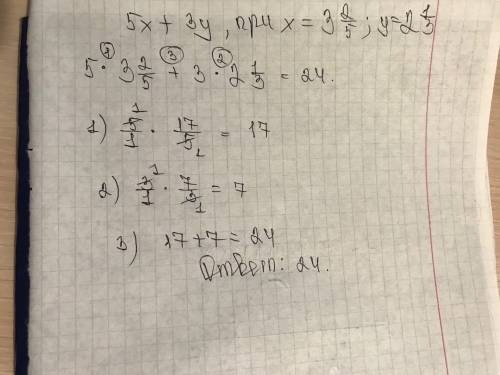 5x + 3y, при x = 3 2/5; y = 2 1/3
5 · 3 2/5 + 3 · 2 1/3 = 24.
1) 5/1 · 17/5 = 17
2) 3/1 · 7/3 = 7
3) 17 + 7 = 24
Ответ: 24.